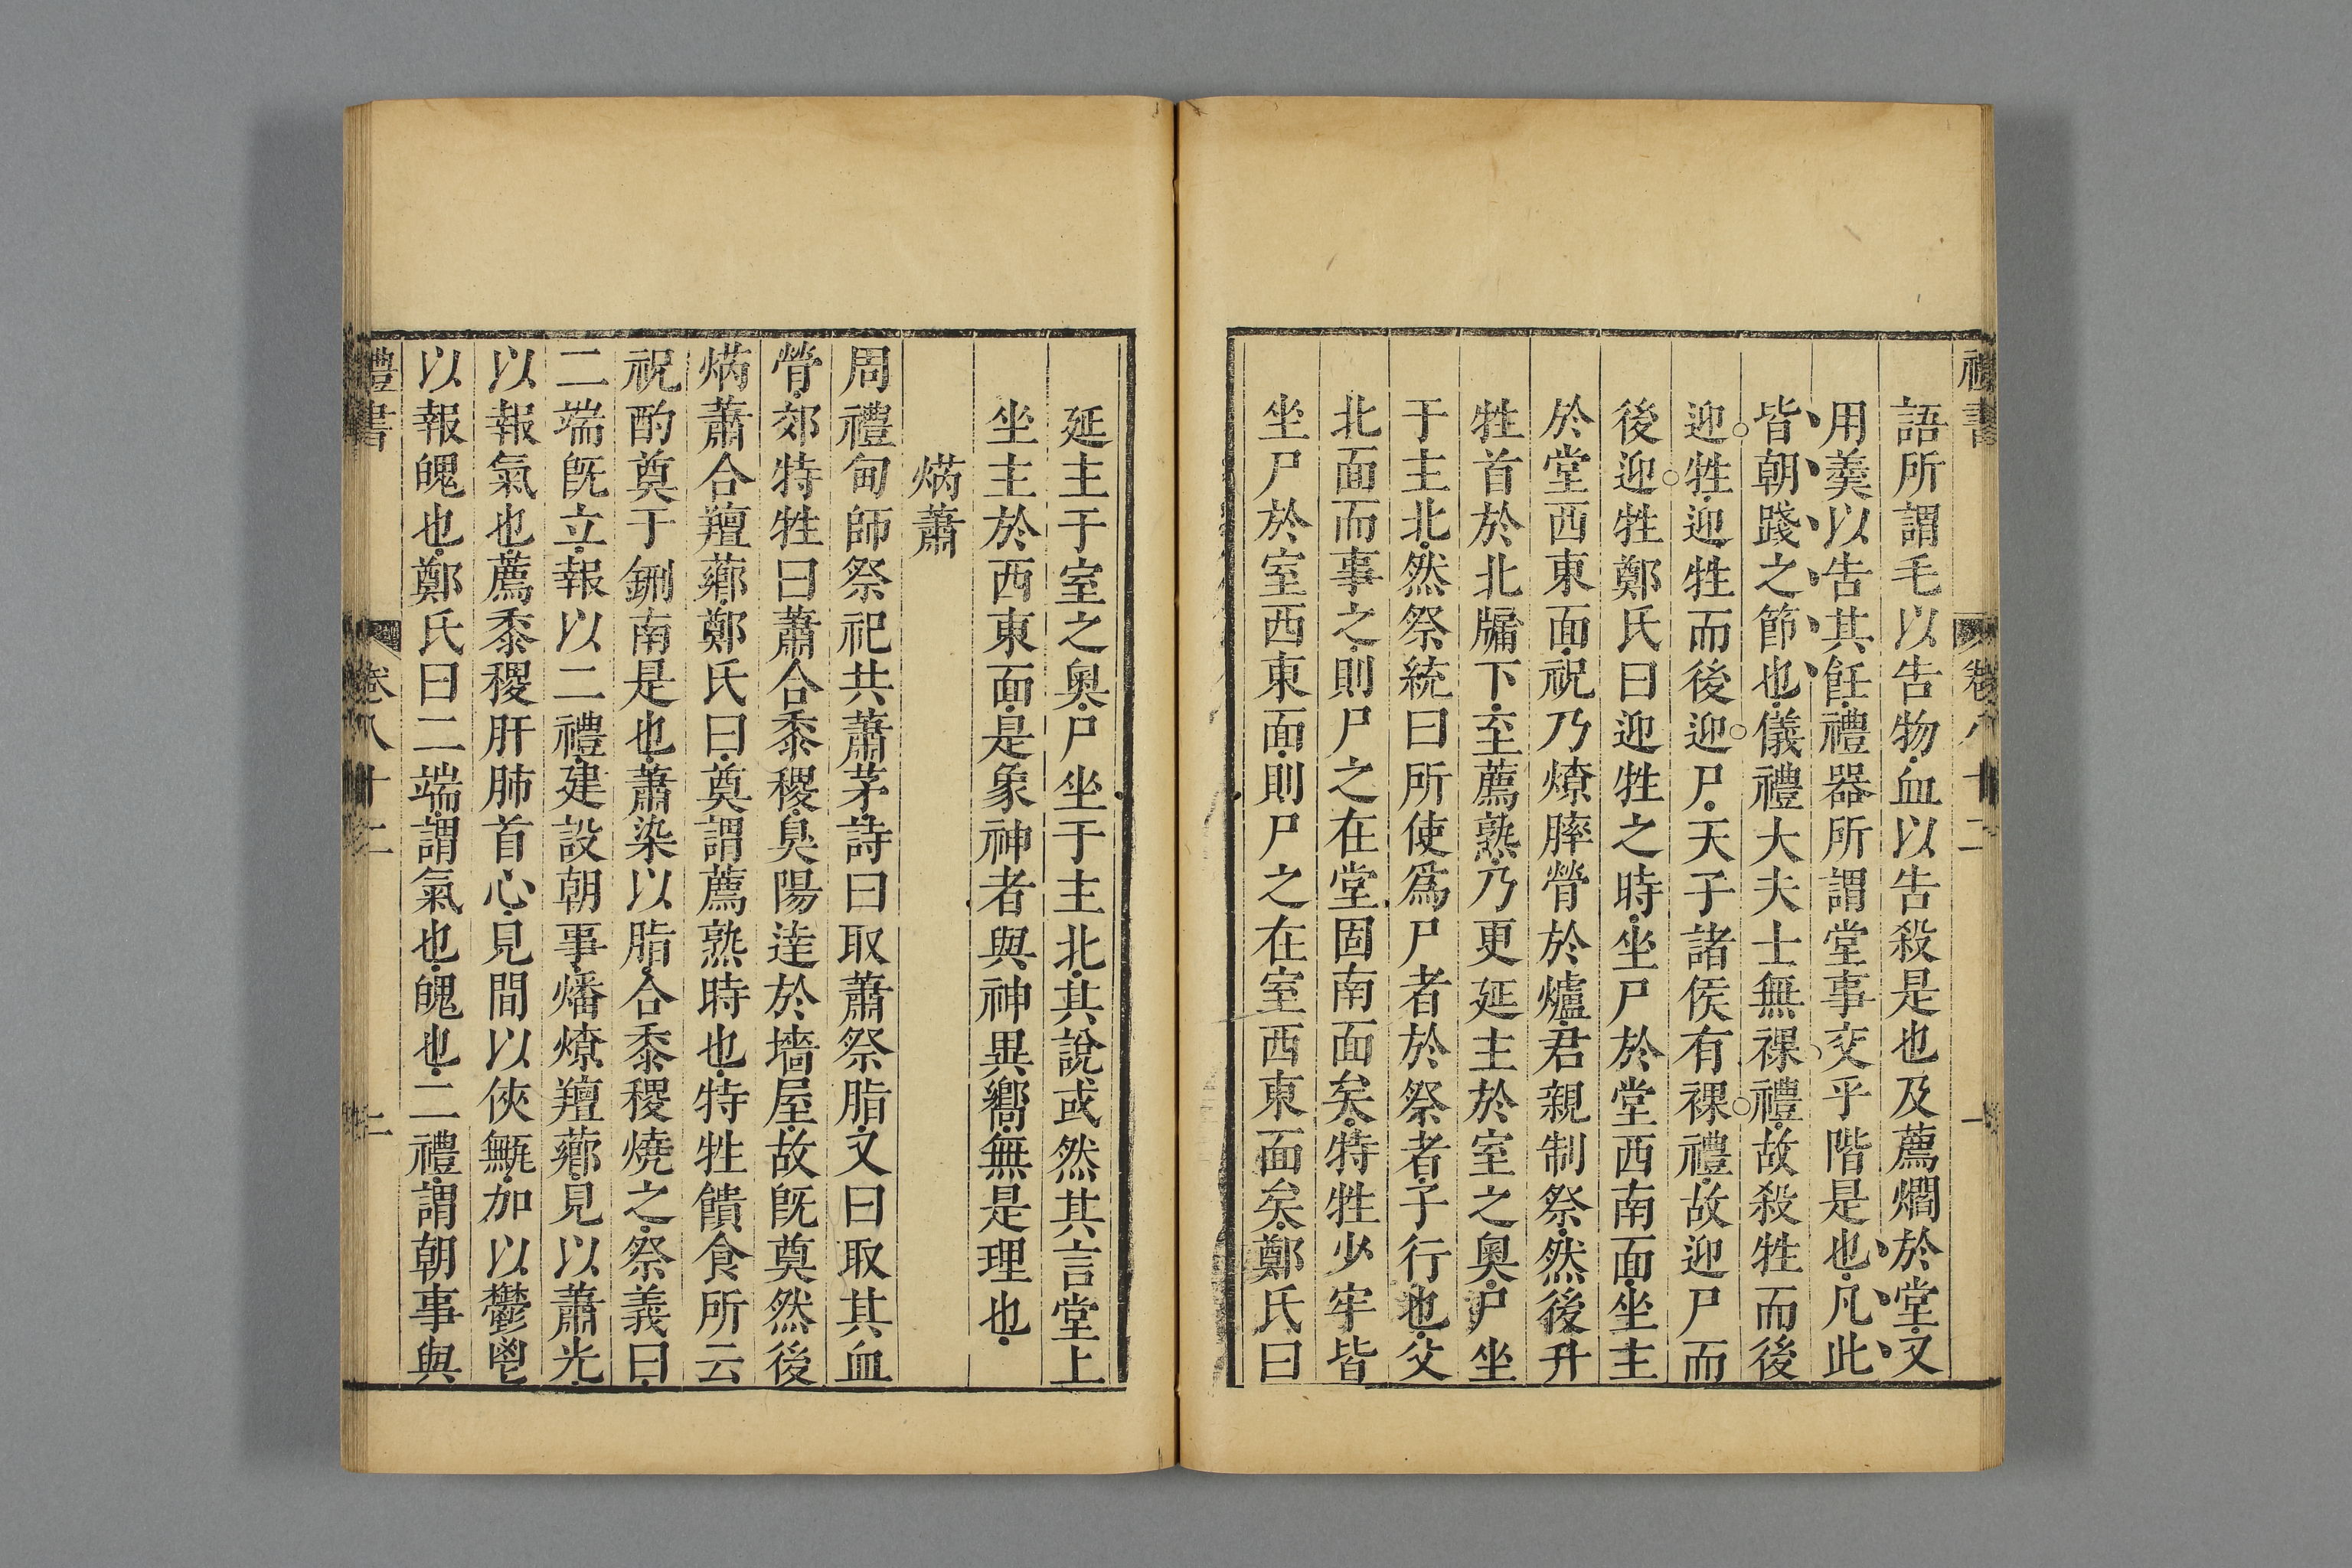 禮書 卷八十二 一
語所謂毛以告物血以告殺是也及薦爓於堂又
用羹以告其飪禮器所謂堂事交乎階是也凡此
皆朝踐之節也儀禮大夫士無祼禮故殺牲而後
迎牲迎牲而後迎尸天子諸侯有祼禮故迎尸而
後迎牲鄭氏曰迎牲之時坐尸於堂西南面坐主
於堂西東面祝乃燎膟膋於爐君親制祭然後升
牲首於北牖下至薦熟乃更延主於室之奧尸坐
于主北然祭統曰所使爲尸者於祭者子行也父
北面而事之則尸之在堂固南面矣特牲少牢皆
坐尸於室西東面則尸之在室西東面矣鄭氏曰
延主于室之奧尸坐于主北其說或然其言堂上
坐主於西東面是象神者與神異嚮無是理也
焫蕭
周禮甸師祭祀共蕭茅詩曰取蕭祭脂又曰取其血
膋郊特牲曰蕭合黍稷臭陽逹於墻屋故旣奠然後
焫蕭合羶薌鄭氏曰奠謂薦熟時也特牲饋食所云
祝酌奠于鉶南是也蕭染以脂合黍稷燒之祭義曰
二端旣立報以二禮建設朝事燔燎羶薌見以蕭光
以報氣也薦黍稷肝肺首心見間以俠甒加以鬱鬯
以報魄也鄭氏曰二端謂氣也魄也二禮謂朝事與
禮書 卷八十二 二